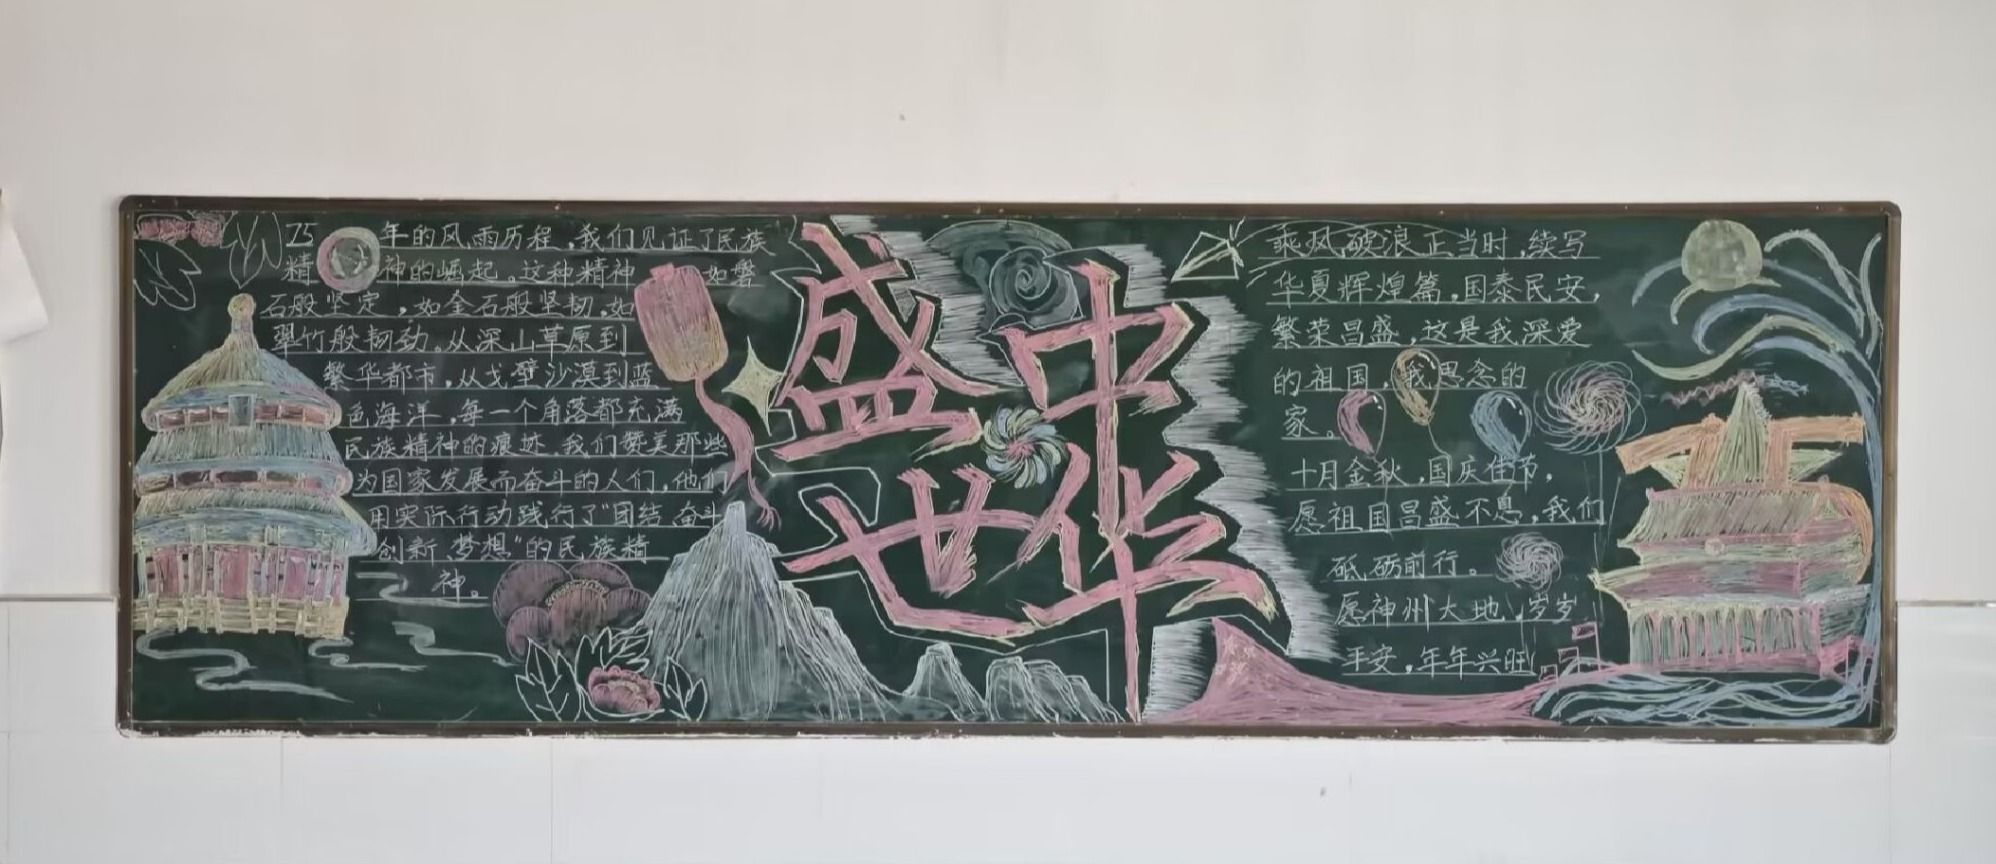 75年的风雨历程,我们见证了民族
精神的崛起。这种精神如磐
石般坚定,如金石般坚韧,如
翠竹般韧劲。从深山草原到
繁华都市,从戈壁沙漠到蓝
色海洋,每一个角落都充满
民族精神的痕迹.我们赞美那些
为国家发展而奋斗的人们,他们
用实际行动践行了“团结.奋斗
创新、梦想”的民族精
神。
盛世
中华
乘风破浪正当时,续写
华夏辉煌篇,国泰民安,
繁荣昌盛,这是我深爱
的祖国,我思念的
家。
十月金秋,国庆佳节,
愿祖国昌盛不息,我们
砥砺前行。
愿神州大地,岁岁
平安,年年兴旺